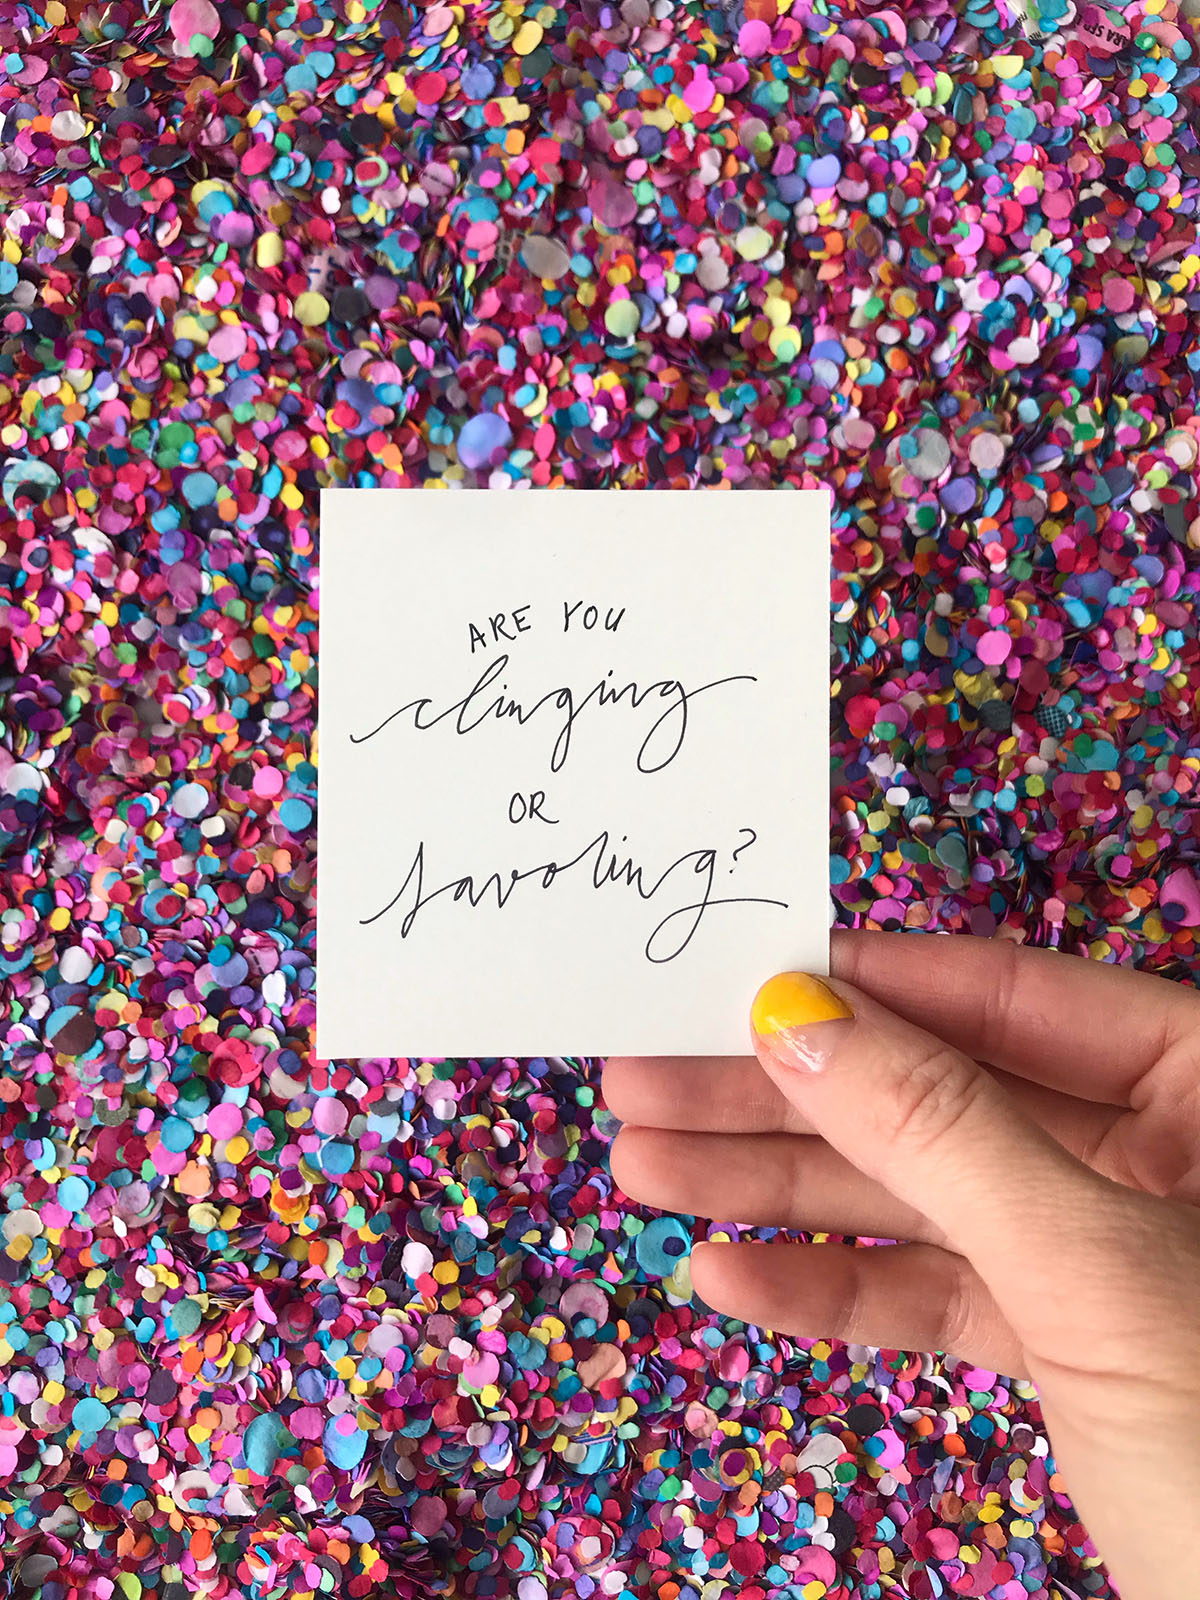 ARE YOU
clinging
OR
savoring?
ARA SER